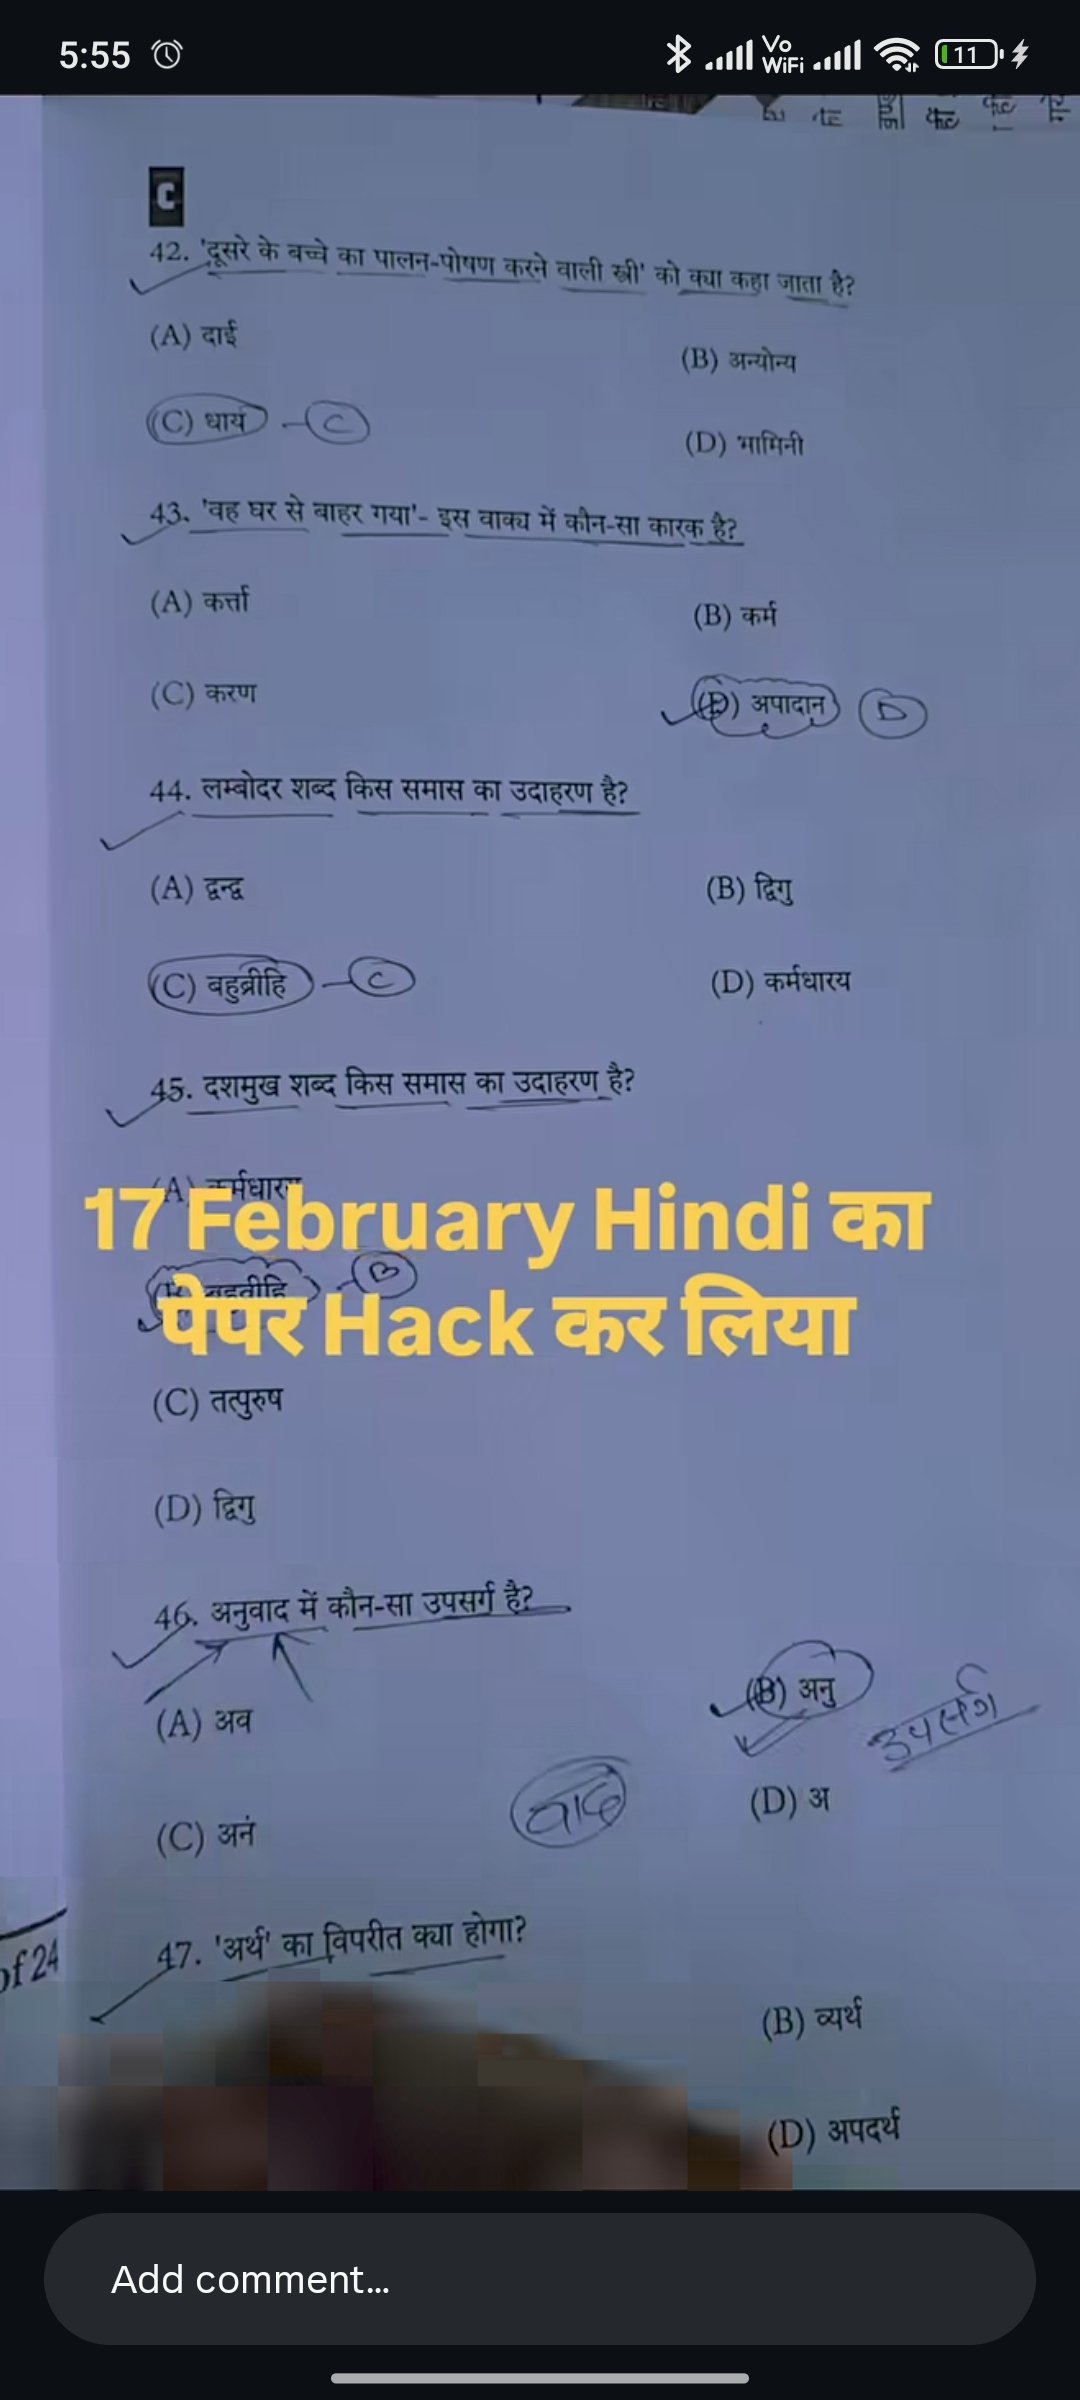 5:55
Vo
WiFi
11
C
42. 'दूसरे के बच्चे का पालन-पोषण करने वाली स्त्री' को क्या कहा जाता है?
(A) दाई
(B) अन्योन्य
(C) धाय C
(D) भामिनी
43. 'वह घर से बाहर गया'- इस वाक्य में कौन-सा कारक है?
(A) कर्त्ता
(B) कर्म
(C) करण
(D) अपादान D
44. लम्बोदर शब्द किस समास का उदाहरण है?
(A) द्वन्द्व
(B) द्विगु
(C) बहुब्रीहि C
(D) कर्मधारय
45. दशमुख शब्द किस समास का उदाहरण है?
(A) कर्मधारय
17 February Hindi का
बहुब्रीहि B
पेपर Hack कर लिया
(C) तत्पुरुष
(D) द्विगु
46. अनुवाद में कौन-सा उपसर्ग है?
(A) अव
(B) अनु
उपसर्ग
वाद
(C) अनं
(D) अ
of 24
47. 'अर्थ' का विपरीत क्या होगा?
(B) व्यर्थ
(D) अपदर्थ
Add comment...